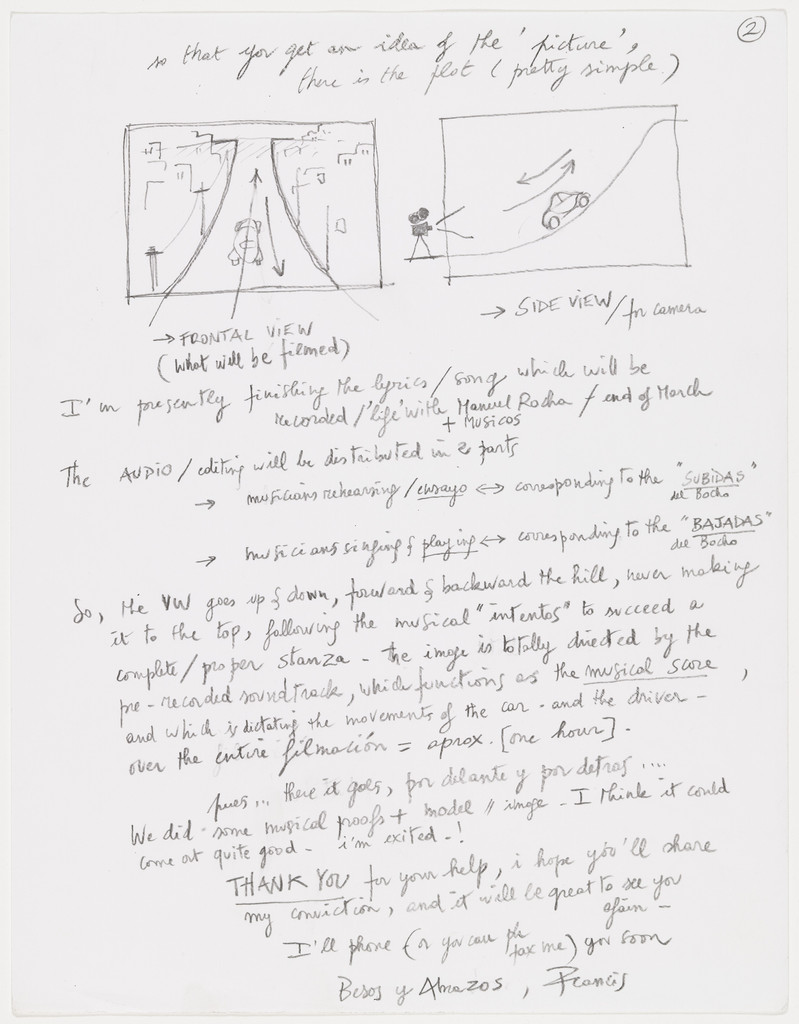 2
so that you get an idea of the 'picture',
there is the plot (pretty simple)
→ FRONTAL VIEW
(what will be filmed)
→ SIDE VIEW / for camera
I'm presently finishing the lyrics / song which will be
recorded / 'life' with Manuel Rocha / end of March
+ MUSICOS
The AUDIO / editing will be distributed in 2 parts
→ musicians rehearsing / ensayo ↔ corresponding to the "SUBIDAS"
del Bocho
→ musicians singing & playing ↔ corresponding to the "BAJADAS"
del Bocho
So, the VW goes up & down, forward & backward the hill, never making
it to the top, following the musical "intentos" to succeed a
complete / proper stanza - the image is totally directed by the
pre-recorded soundtrack, which functions as the musical score,
and which is dictating the movements of the car - and the driver -
over the entire filmación = aprox. [one hour].
pues... there it goes, por delante y por detras ....
We did some musical proofs + model // image - I think it could
come out quite good - i'm exited - !
THANK YOU for your help, i hope you'll share
my conviction, and it will be great to see you
again -
I'll phone (or you can ph/
fax me) you soon
Besos y Abrazos, Francis